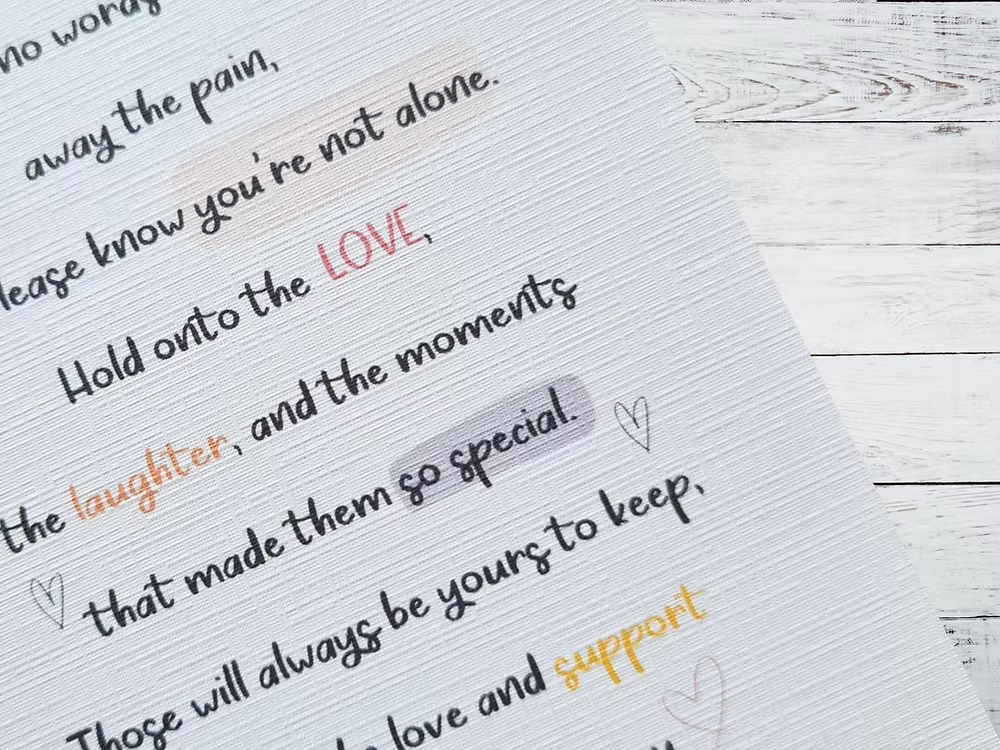 no words
away the pain,
lease know you're not alone.
Hold onto the LOVE,
the laughter, and the moments
that made them so special.
Those will always be yours to keep,
love and support